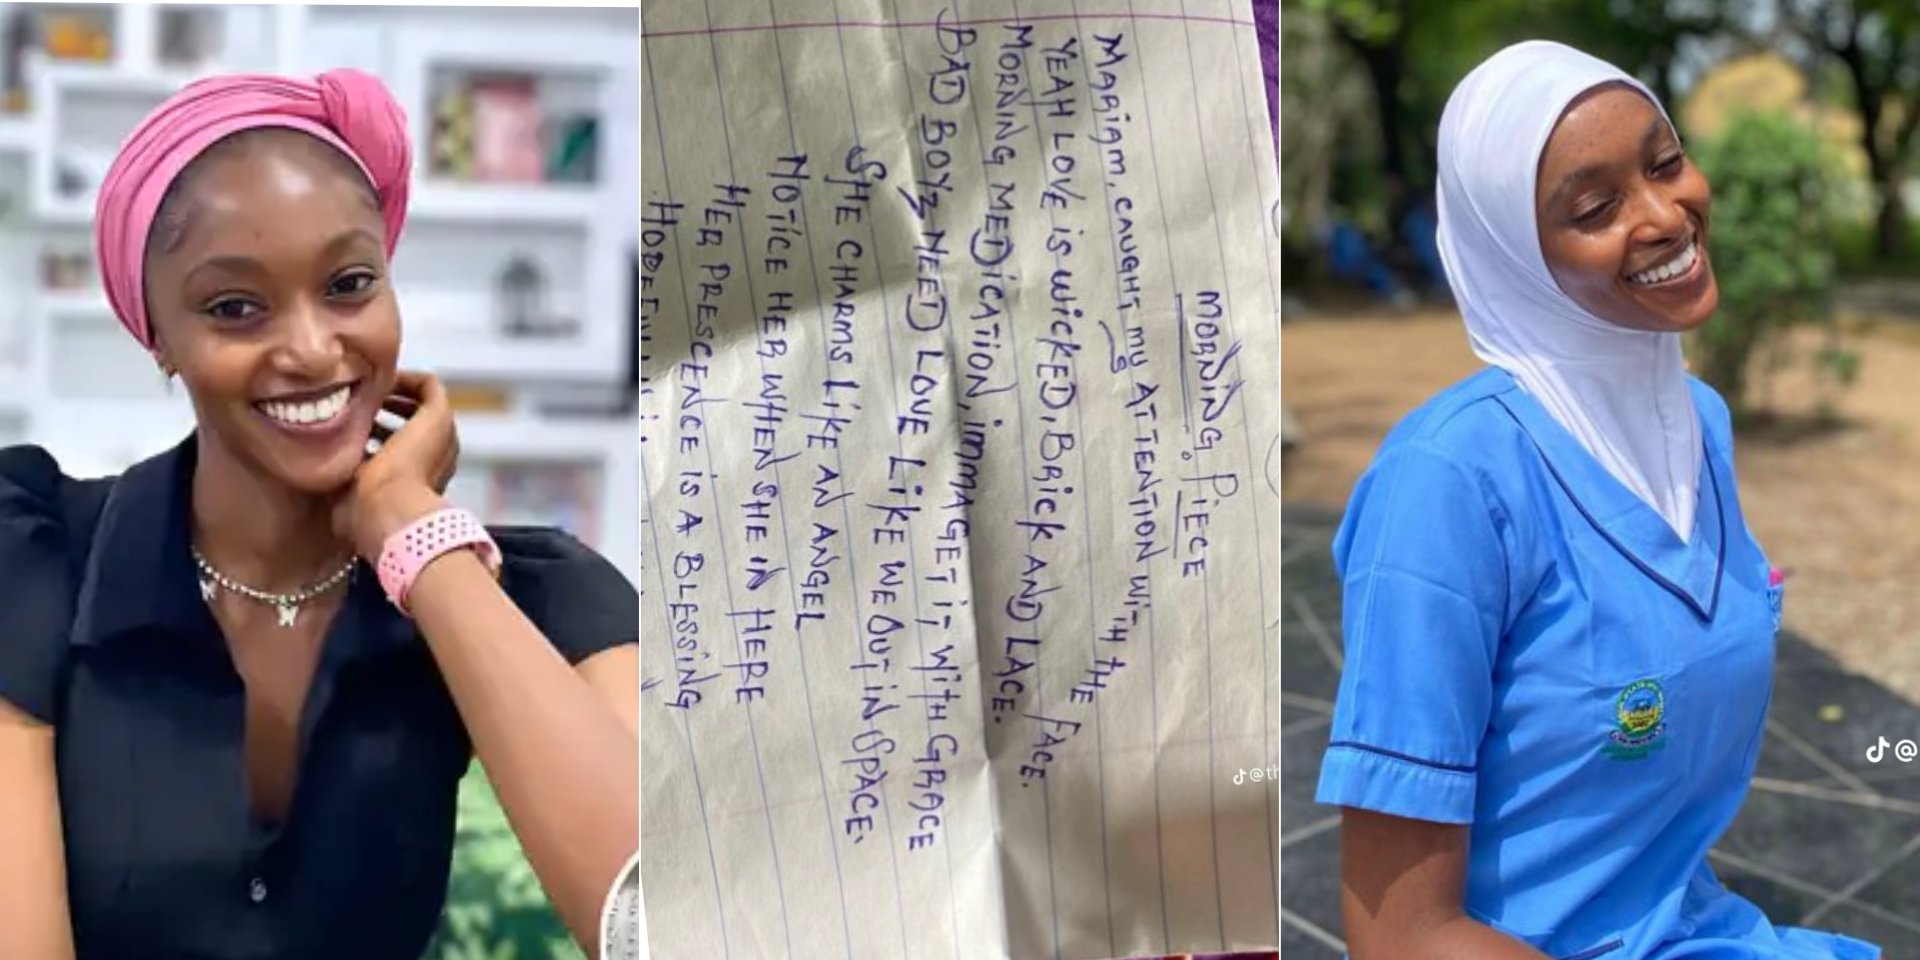 MORNING PIECE
MARIAM, CAUGHT MY ATTENTION WITH THE FACE.
YEAH LOVE IS WICKED, BRICK AND LACE.
MORNING MEDICATION, IMMAGE IT WITH GRACE
BAD BOYZ NEED LOVE LIKE WE OUT IN SPACE.
SHE CHARMS LIKE AN ANGEL
NOTICE HER WHEN SHE IN HERE
HER PRESCENCE IS A BLESSING
@th
@